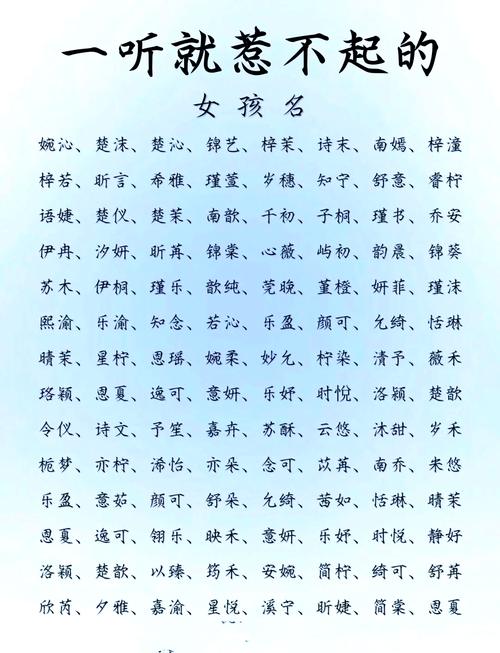 一听就惹不起的
女孩名
婉沁、楚沫、楚沁、锦艺、梓茉、诗末、南嫣、梓潼
梓若、昕言、希雅、瑾萱、岁穗、知宁、舒意、睿柠
语婕、楚仪、楚茉、南歆、千初、子桐、瑾书、乔安
伊冉、汐妍、昕苒、锦棠、心薇、屿初、韵晨、锦葵
苏木、伊桐、瑾乐、歆纯、莞晚、堇橙、妍菲、瑾沫
熙渝、乐渝、知念、若沁、乐盈、颜可、允绮、恬琳
晴茉、星柠、思瑶、婉柔、妙允、柠染、清予、薇禾
珞颖、思夏、逸可、意妍、乐妤、时悦、洛颖、楚歆
令仪、诗文、予笙、嘉卉、苏酥、云悠、沐甜、岁禾
栀梦、亦柠、浠怡、亦朵、念可、苡苒、南乔、朱悠
乐盈、意茹、颜可、舒朵、允绮、茜如、恬琳、晴茉
思夏、逸可、翎乐、映禾、意妍、乐妤、时悦、静好
洛颖、楚歆、以臻、筠禾、安婉、简柠、绮可、舒苒
欣芮、夕雅、嘉渝、星悦、溪宁、昕婕、简棠、思夏